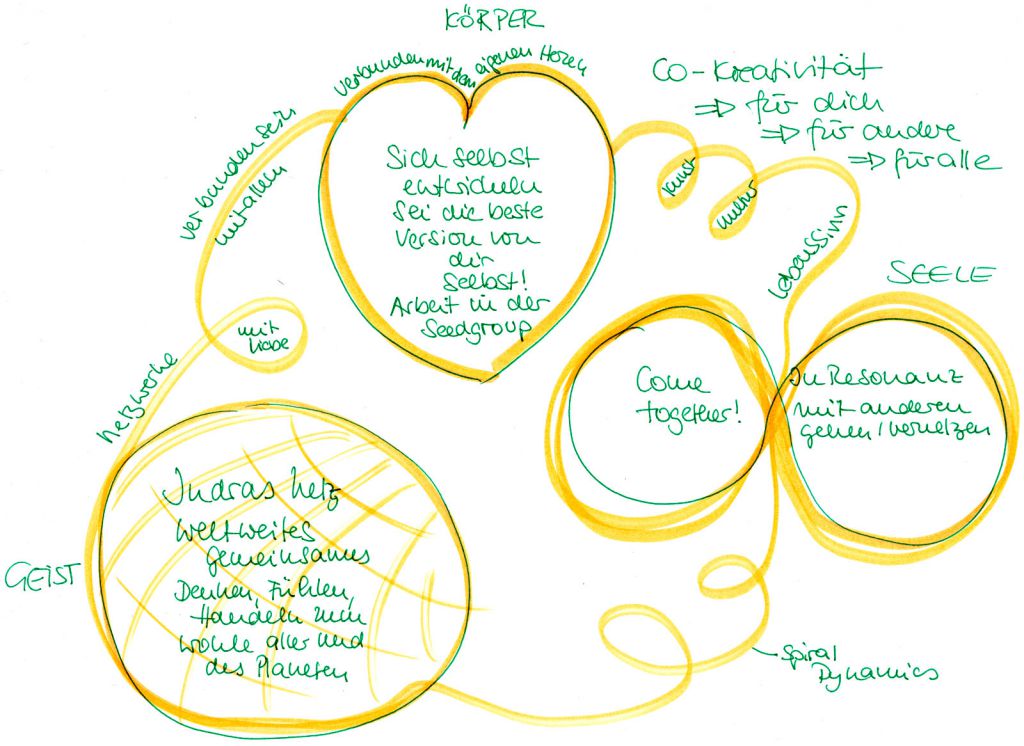 KÖRPER
verbunden mit dem eigenen Herzen
Co-Kreativität
⇒ für dich
⇒ für andere
⇒ für alle
verbunden sein
mit allem
Sich selbst
entwickeln
Sei die beste
Version von
dir
selbst!
Arbeit in der
Seedgroup
Kunst
Kultur
Lebenssinn
SEELE
mit
Liebe
Netzwerke
Come
together!
In Resonanz
mit anderen
gehen / vernetzen
Indras Netz
weltweites
gemeinsames
Denken, Fühlen,
Handeln zum
Wohle aller und
des Planeten
GEIST
Spiral
Dynamics